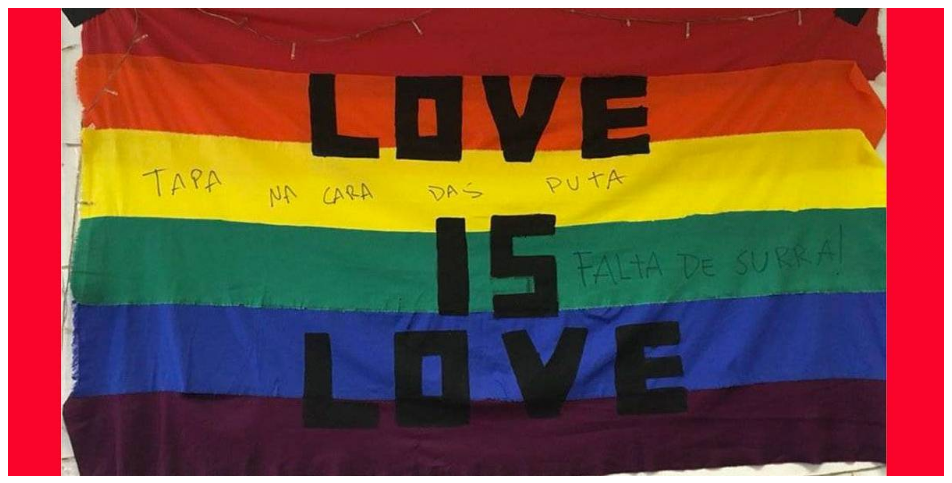 LOVE
TAPA NA CARA DAS PUTA
IS
FALTA DE SURRA!
LOVE